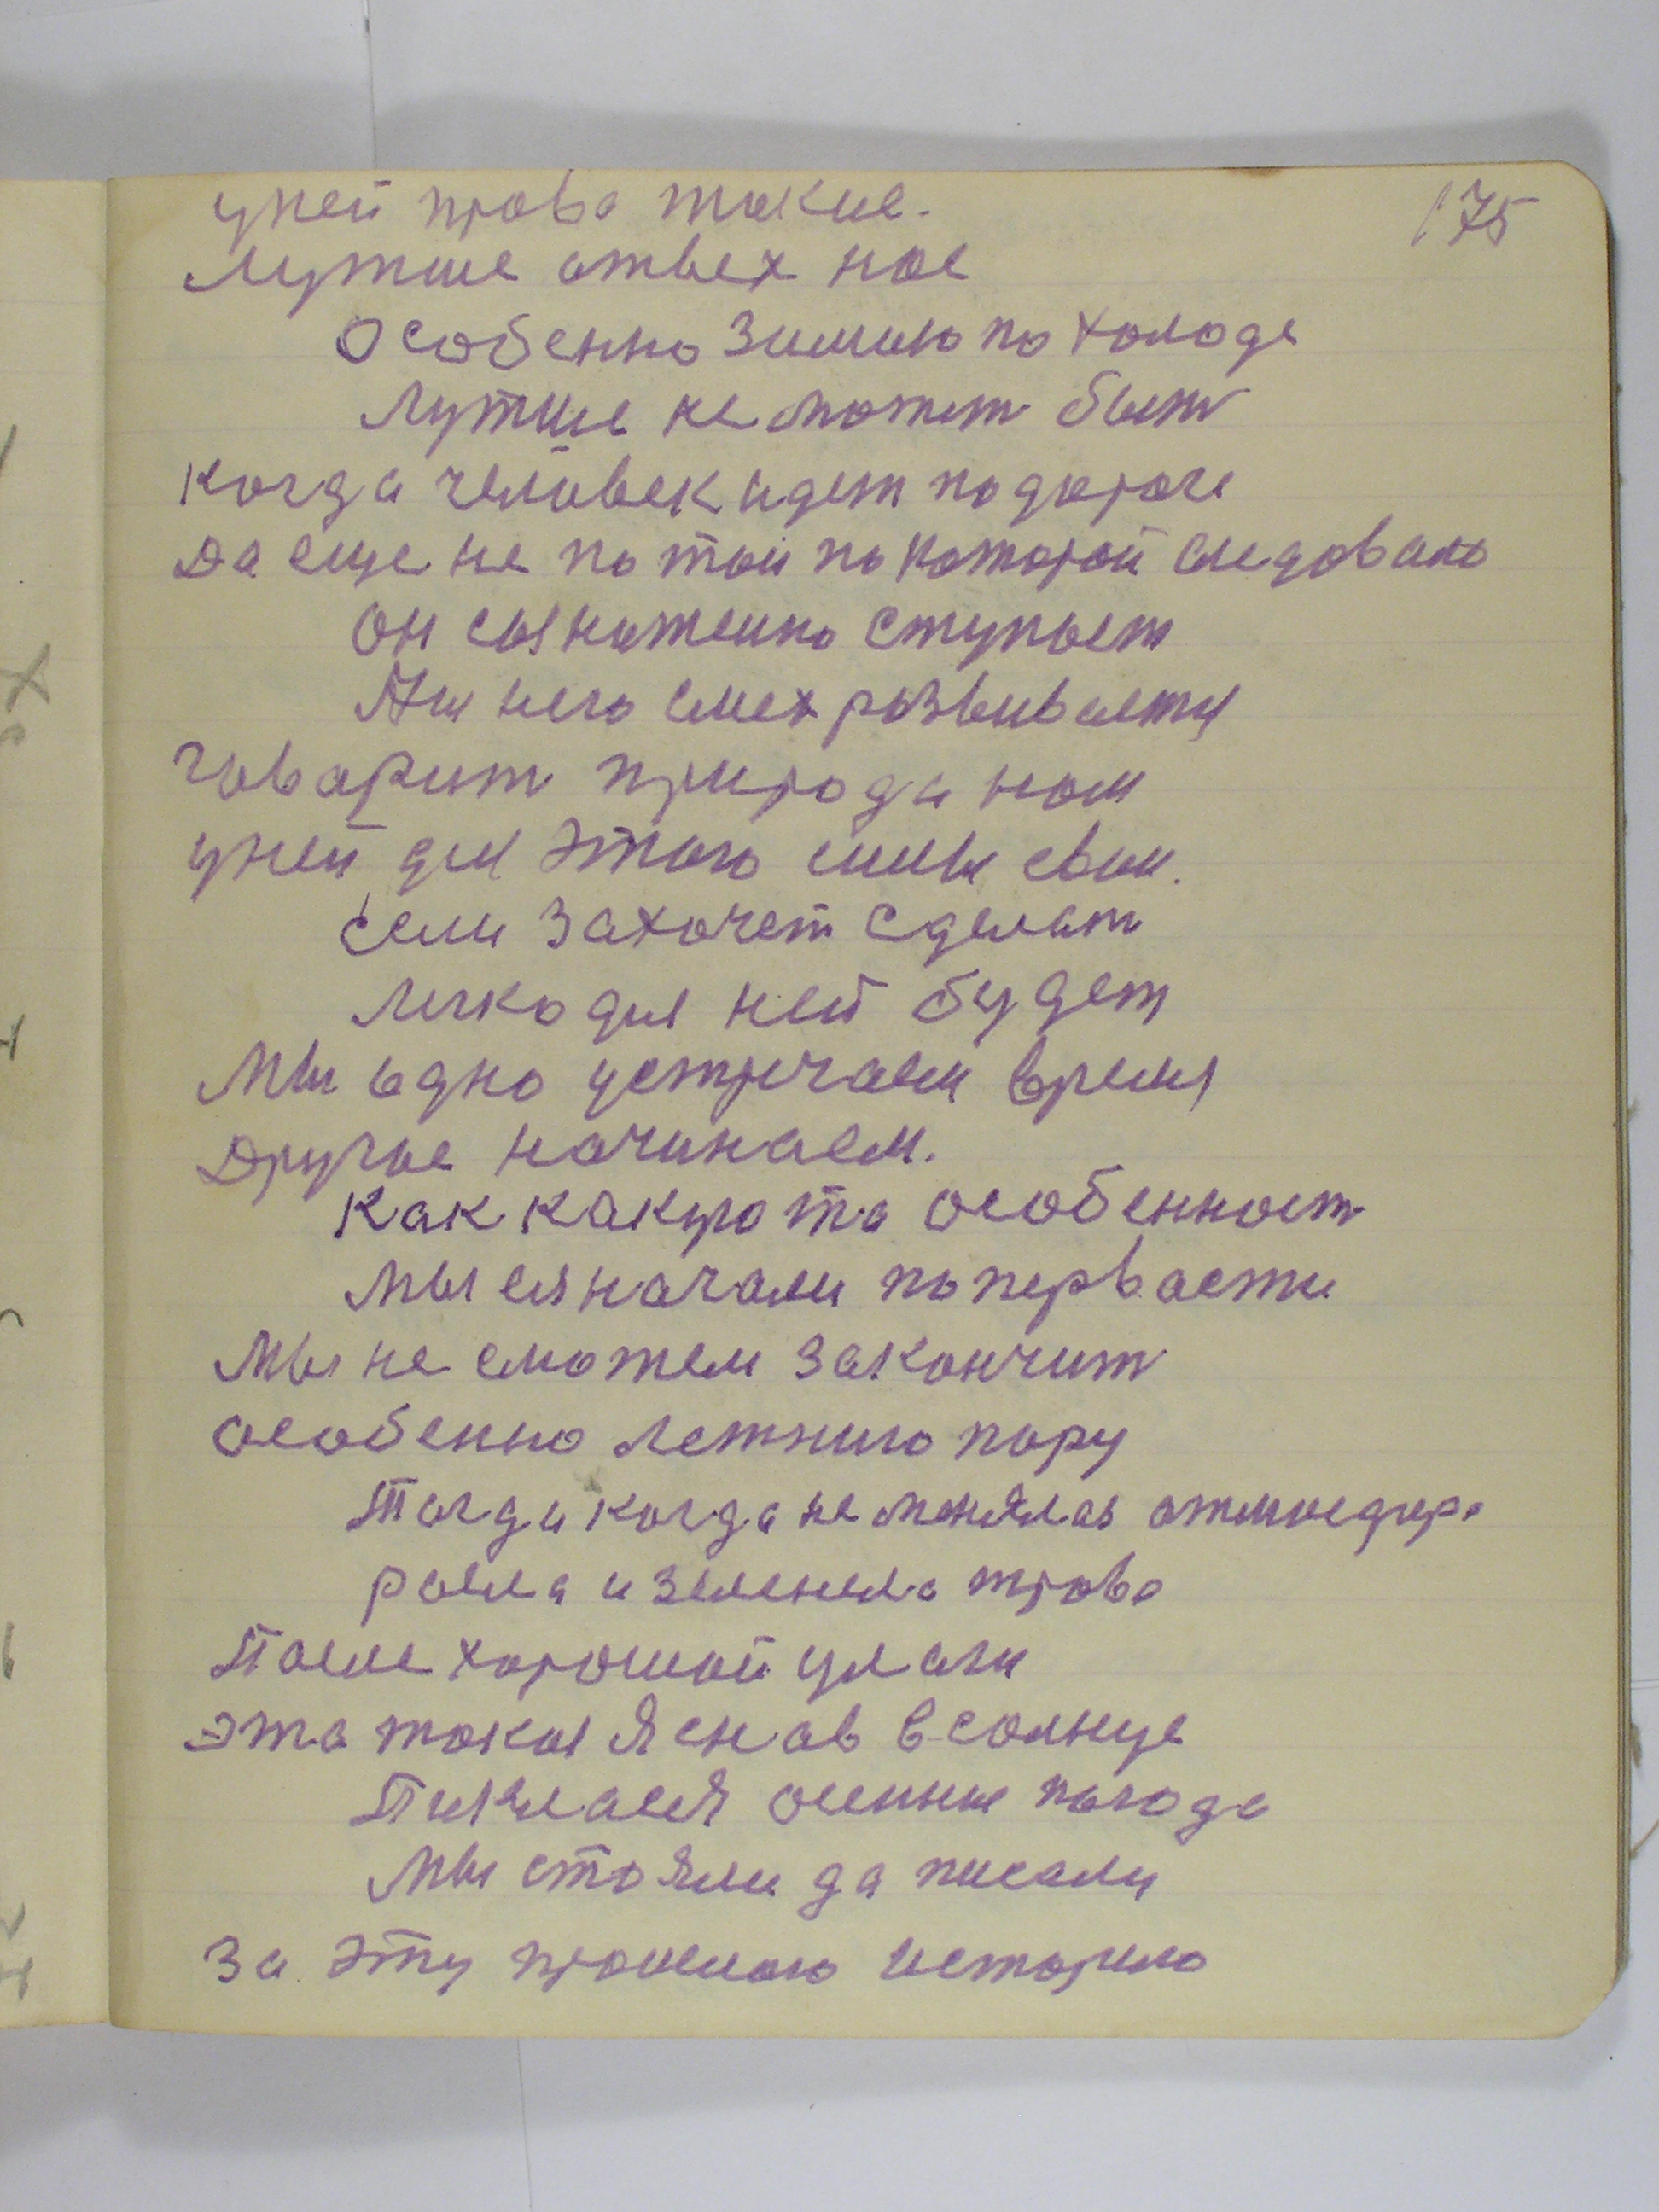 175
уней права такие.
Лутше отвех нае
Особенно Зимию по холоде
Лутше не может быть
Когда человек идет по дороге
Да еще не по той по которой следовало
Он ступает
него смех развивается
Говарит природа нам
уней для этого силы свои.
Если захочет сделат
Легко для ней будет
Мы одно устричаем время
Другое начинаем.
Как какуюта особенност
Мы ея начали по первасти
Мы не сможем закончит
Особенно летнию пору
Тагда когда не менялас атмосфера
расла и зеленела трава
Пасле харошай улаги
Эта такая в солнце
осенние погода
Мы стояли да писали
За эту прошлаю историю